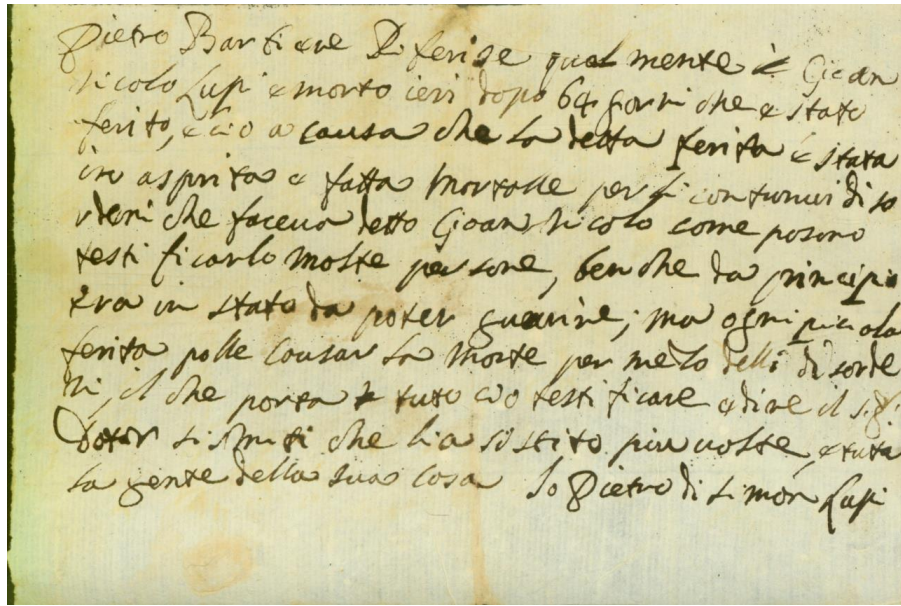 Pietro Bartiere Riferise qualmente è Gioan
Nicolo Lupi e morto ieri dopo 64 giorni che e stato
ferito, e cio a causa che la detta ferita è stata
in asprita e fatta mortalle per li continui di so
rdeni che faceva detto Gioan Nicolo come posono
testi ficarlo molte persone, ben che da principio
era in stato da poter guarire; ma ogni piciola
ferita polle causar la morte per mezo delli di sorde
ni, il che portra tuto cio testi ficare e dire il
Dotor che lia sistito piu volte, e tuta
la gente della sua casa Io Pietro di Simon Lupi